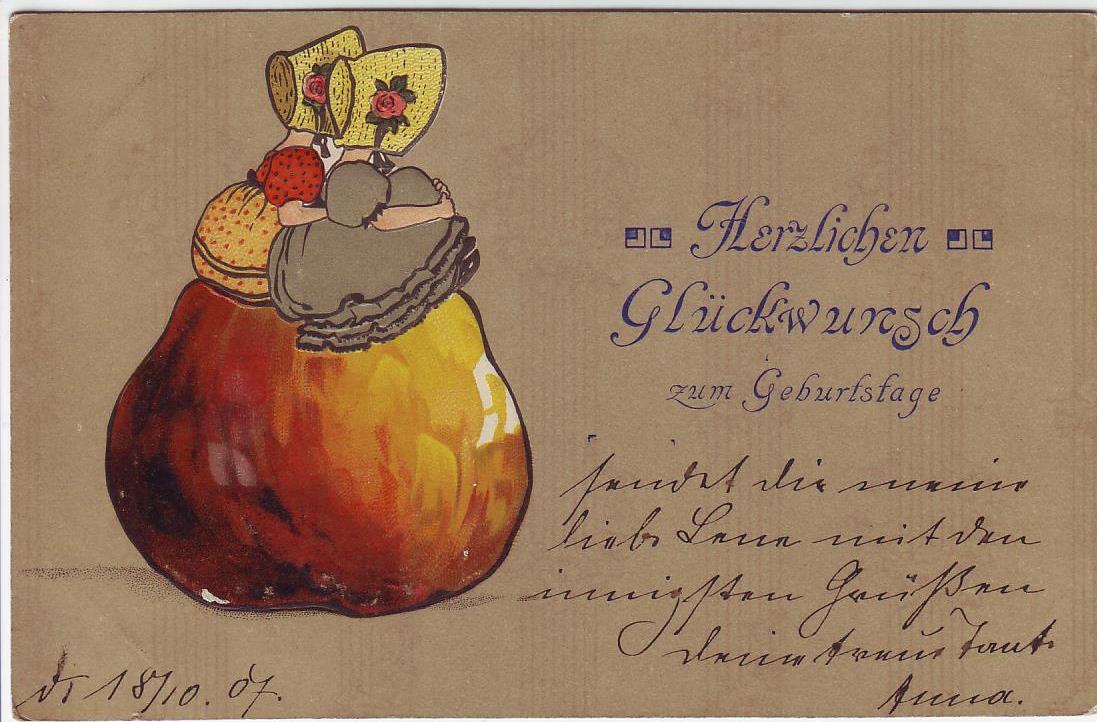 Herzlichen
Glückwunsch
zum Geburtstage
sendet dir meine
liebe Lene mit den
innigsten Grüßen
deine treue Tante
Anna.
d. 18/10. 07.